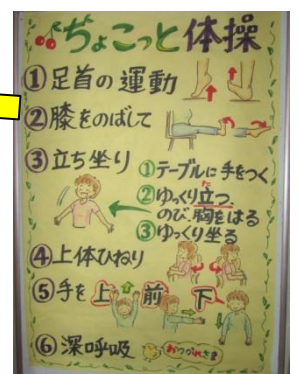 ちょこっと体操
①足首の運動
②膝をのばして
③立ち坐り
①テーブルに手をつく
②ゆっくり立つ
のび、胸をはる
③ゆっくり坐る
④上体ひねり
⑤手を上前下
⑥深呼吸
おつかれさま